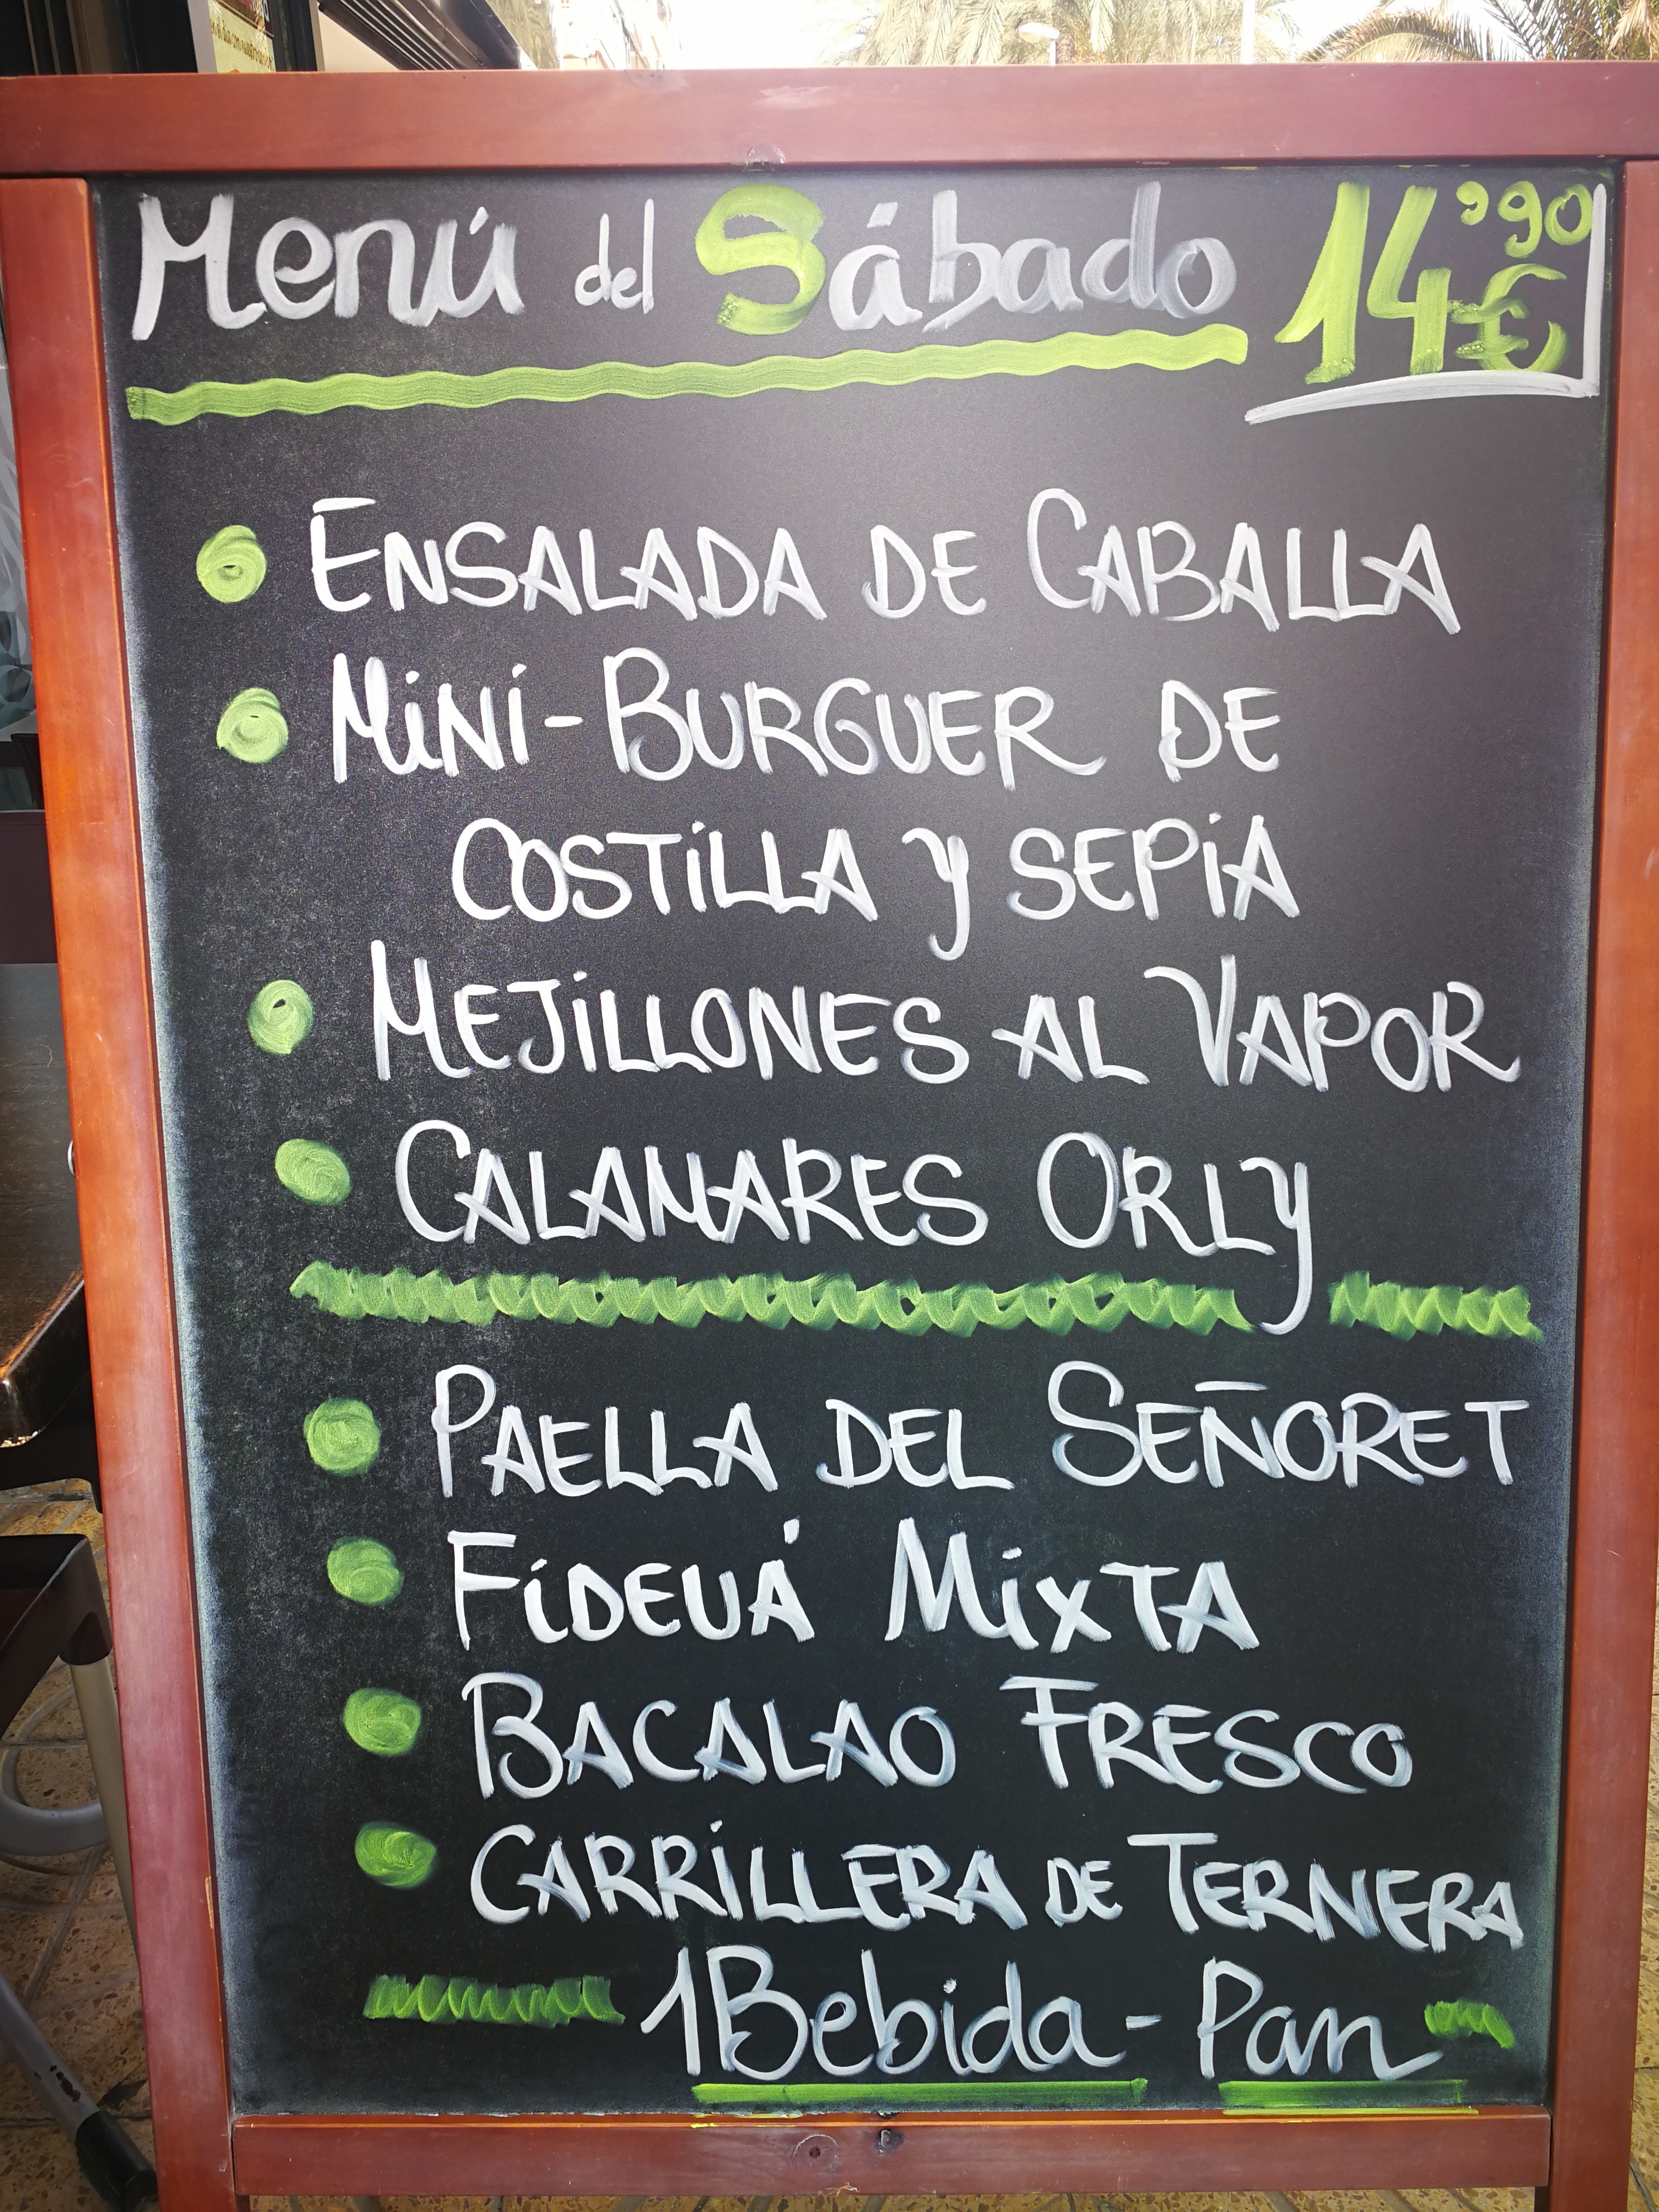 Menú del Sábado 14'90€
ENSALADA DE CABALLA
MiNi-BURGUER DE
COSTiLLA y SEPiA
MEJiLLONES AL VAPOR
CALAMARES ORLy
PAELLA DEL SEÑORET
FiDEUÁ MixTA
BACALAO FRESCO
CARRiLLERA DE TERNERA
1 Bebida - Pan